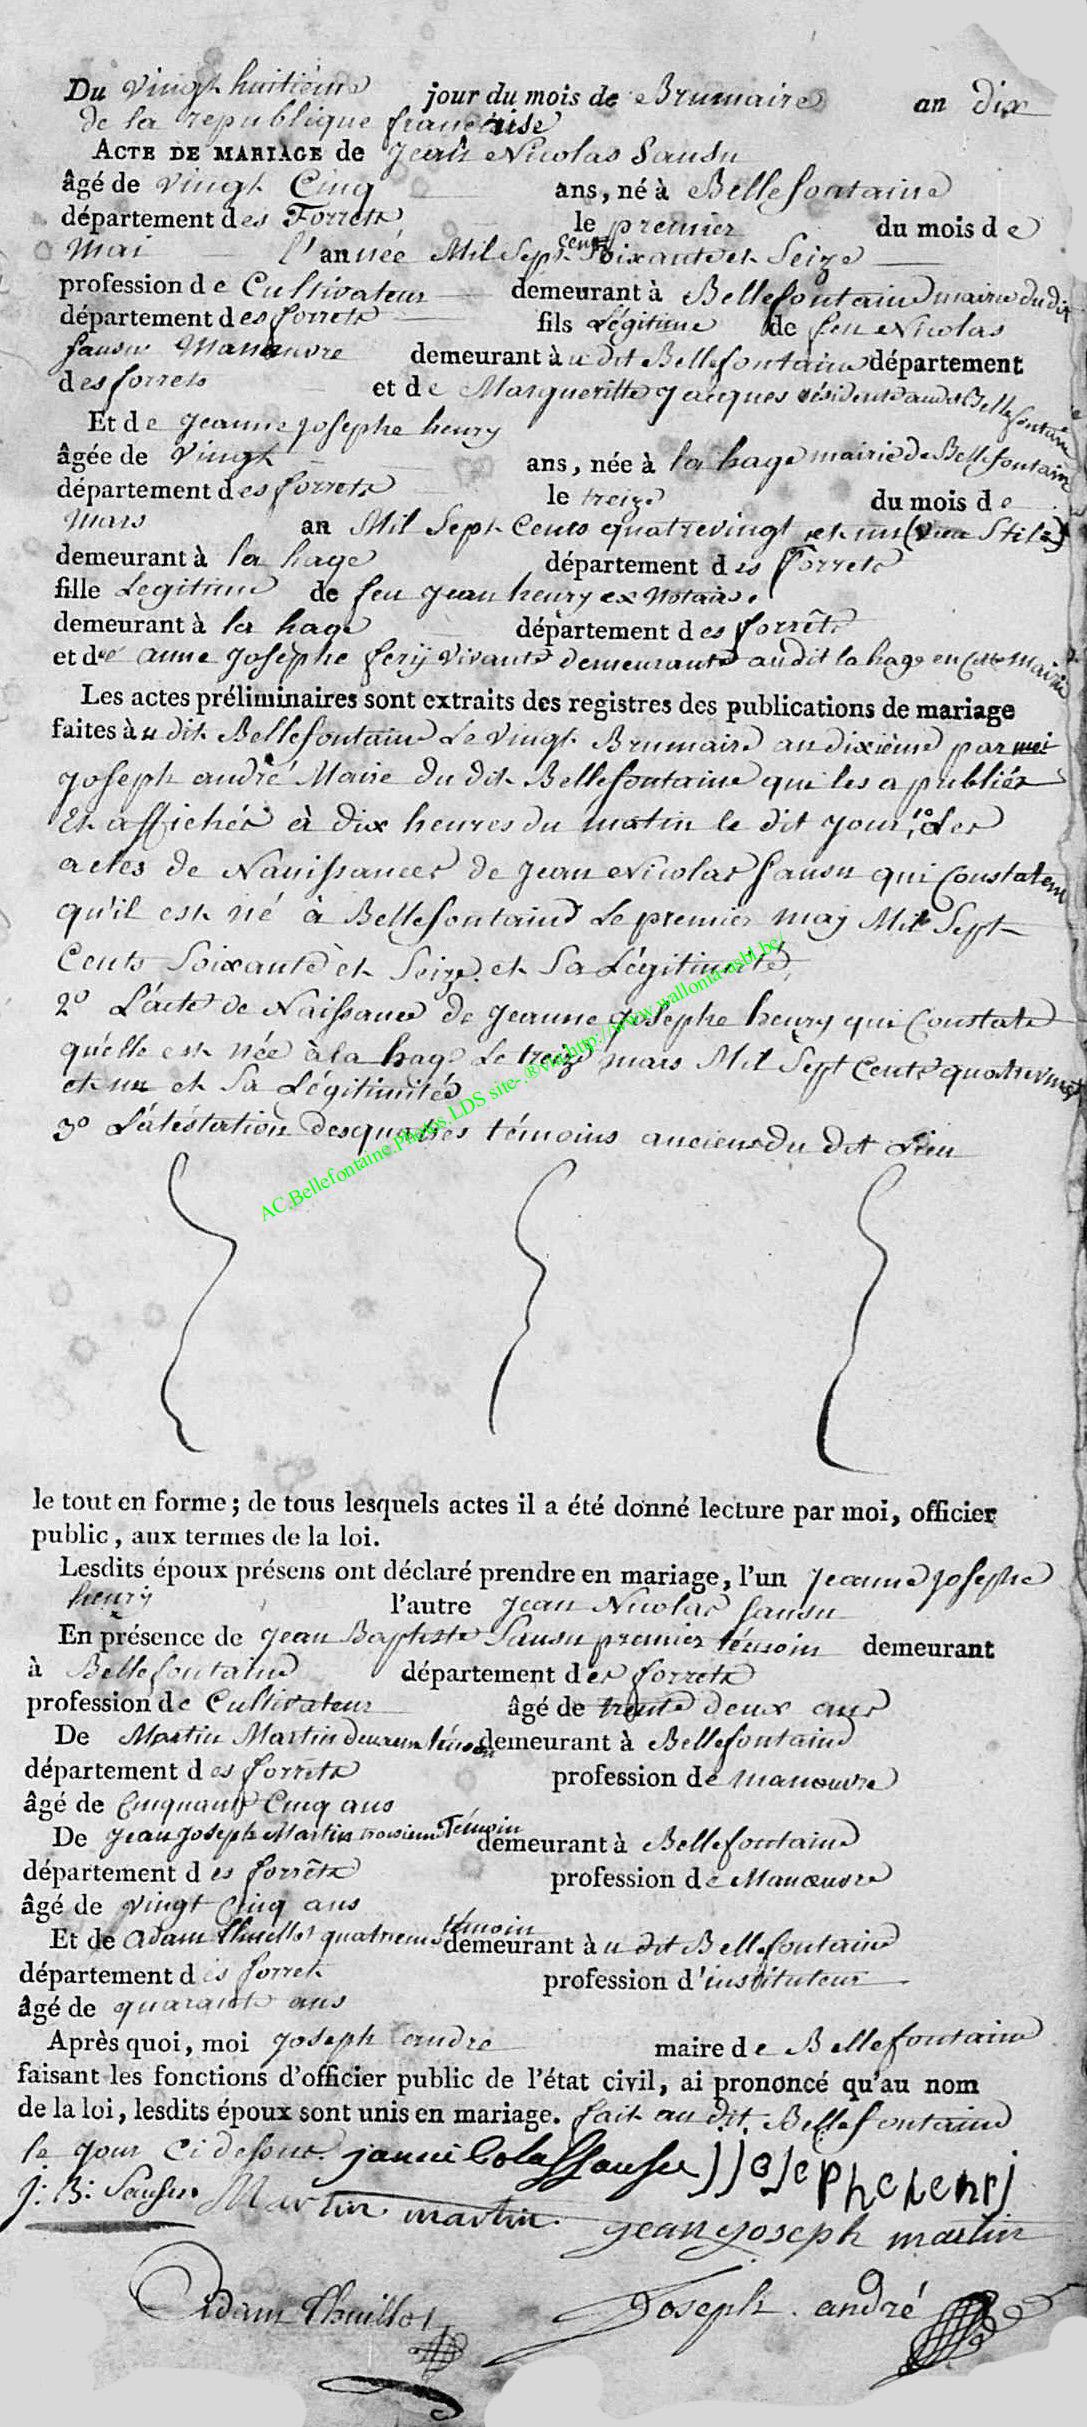 Du vingt huitieme jour du mois de Brumaire an dix
de la republique francaise
ACTE DE MARIAGE de Jean Nicolas Sausu
âgé de vingt Cinq ans, né à Bellefontaine
département des Forrets le premier du mois de
Mai l'année Mil Sept Cents Soixante et Seize
profession de Cultivateur demeurant à Bellefontaine mairie dudit
département des forrets fils Légitime de feu Nicolas
Sausu Manœuvre demeurant à u dit Bellefontaine département
des forrets et de Margueritte Jacques résidente audit Bellefontaine
Et de Jeanne Josephe henry
âgée de Vingt ans, née à la hage mairie de Bellefontaine
département des forrets le treize du mois de
Mars an Mil Sept Cents quatrevingt et un (vieu Stile)
demeurant à la hage département des Forrets
fille Legitime de feu Jean henry ex Notaire.
demeurant à la hage département des forrêts
et de anne Josephe ferÿ Vivante demeurante audit la hage en Cette Mairie
Les actes préliminaires sont extraits des registres des publications de mariage
faites àu dit Bellefontaine Le vingt Brumaire an dixième par moi
Joseph andré Maire du dit Bellefontaine qui les a publiés
Et affichés à dix heures du matin le dit jour, 1o Les
actes de Naissances de Jean Nicolas Sausu qui Constatent
qu'il est né à Bellefontaine Le premier may Mil Sept
Cents Soixante et Seize et Sa Légitimité
2o L'acte de Naissance de Jeanne Josephe henry qui Constate
quelle est née à la hage Le treize mars Mil Sept Cents quatrevingt
et un et Sa Légitimité
3o L'atéstation des quattres témoins anciens du dit Lieu
AC.Bellefontaine.Photos.LDS site-.®via.http://www.wallonia-asbl.be/
le tout en forme; de tous lesquels actes il a été donné lecture par moi, officier
public, aux termes de la loi.
Lesdits époux présens ont déclaré prendre en mariage, l'un Jeanne Josephe
henry l'autre Jean Nicolas Sausu
En présence de Jean Baptiste Sausu premier témoin demeurant
à Bellefontaine département des forrets
profession de Cultivateur âgé de trente deux ans
De Martin Martin deuxieme témoin demeurant à Bellefontaine
département des forrêts profession de manouvre
âgé de Cinquante Cinq ans
De Jean Joseph Martin troisieme Témoin demeurant à Bellefontaine
département des forrêts profession de Manœuvre
âgé de vingt Cinq ans
Et de Adam Thuillot quatrieme témoin demeurant à u dit Bellefontaine
département des forrets profession d'instituteur
âgé de quarante ans
Après quoi, moi Joseph andre maire de Bellefontaine
faisant les fonctions d'officier public de l'état civil, ai prononcé qu'au nom
de la loi, lesdits époux sont unis en mariage. fait au dit Bellefontaine
le jour Ci dessus. janni Cola SSausu JJosephe henrj
J: B: Sausu. Martin martin. jean joseph martin
Adam Thuillot Joseph andré